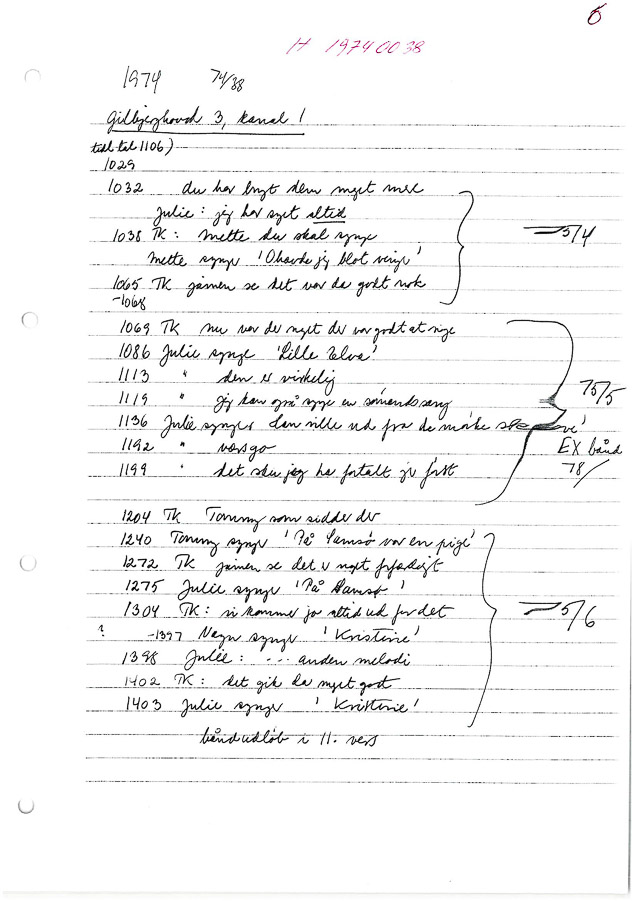 6
H 19740038
1974 74/38
Gilbjerghoved 3, kanal 1
tidl tal 1106)
1029
1032 du har brugt dem meget mere
Julie: jeg har syet altid
1038 TK: Mette du skal synge
Mette synger 'O havde jeg blot vinger'
5/4
1065 TK jamen se det var da godt nok
-1068
1069 TK nu var der noget der var godt at sige
1086 Julie synger 'Lille Elva'
1113 " den er virkelig
75/5
1119 " jeg kan også synge en sømandssang
1136 Julie synger Han ville ud fra de mørke
EX bånd
78/
1192 " værsgo
1199 " det sku jeg ha fortalt jer først
1204 TK Tommy som sidder der
1240 Tommy synger 'På Samsø var en pige'
1272 TK jamen se det er noget
1275 Julie synger 'På Samsø'
1304 TK: vi kommer jo altid ud for det
5/6
? -1397 synger 'Kristine'
1398 Julie: ... anden melodi
1402 TK: det gik da meget godt
1403 Julie synger 'Kristine'
bånd udløb i 11. vers